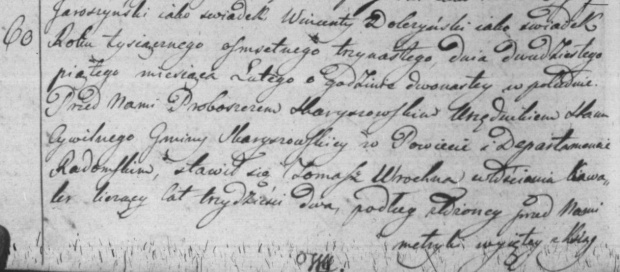 Jaroszyński iako swiadek Wincenty Dobrzyński iako swiadek
60.
Roku tysiącznego osmsetnego trzynastego, dnia dwudziestego
piątego miesiąca Lutego o godzinie dwunastey w południe.
Przed Nami Proboszczem Skaryszewskim Urzędnikiem Stanu
Cywilnego Gminy Skaryszewskiey w Powiecie i Departamencie
Radomskim, stawił się Tomasz Wrochna włościanin kawa„
ler liczący lat trzydzieści dwa, podług złożoney przed Nami
metryki wyiętey z ksiąg